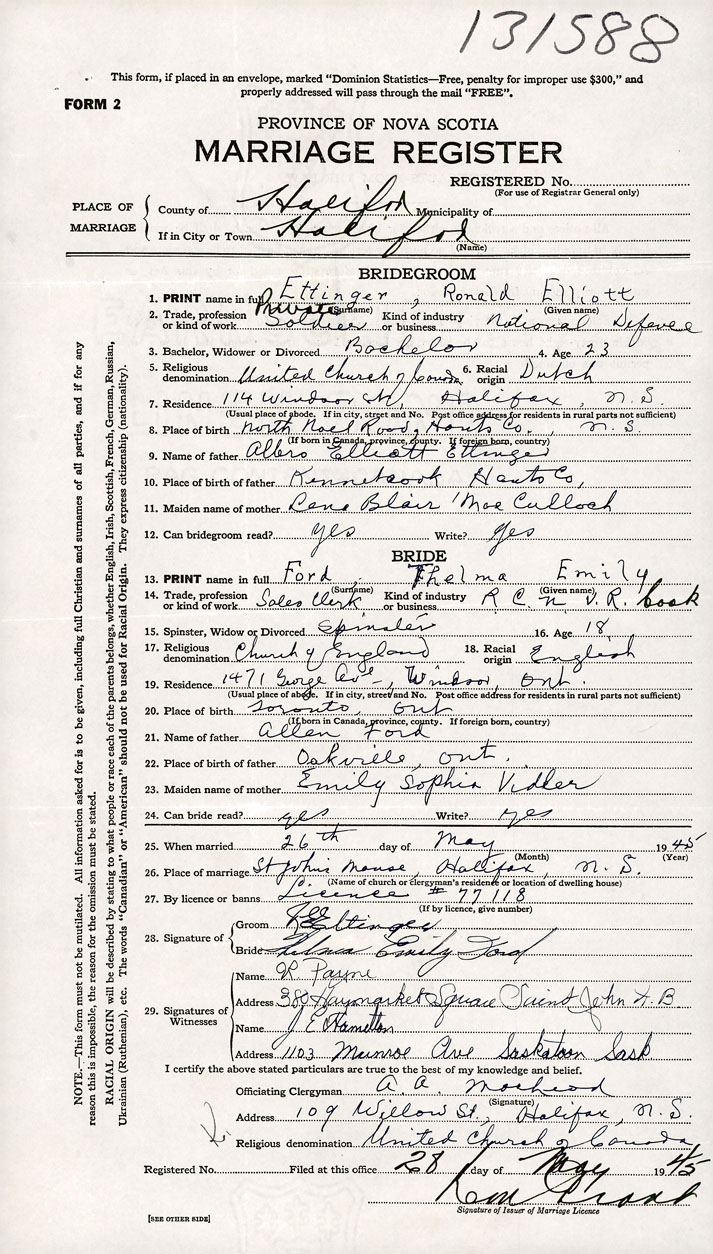 131588
This form, if placed in an envelope, marked "Dominion Statistics—Free, penalty for improper use $300," and
properly addressed will pass through the mail "FREE".
FORM 2
PROVINCE OF NOVA SCOTIA
MARRIAGE REGISTER
REGISTERED No.
(For use of Registrar General only)
PLACE OF MARRIAGE
County of Halifax Municipality of
If in City or Town Halifax
(Name)
BRIDEGROOM
1. PRINT name in full Ettinger, Ronald Elliott
(Surname) (Given name)
Private
2. Trade, profession or kind of work Soldier Kind of industry or business National Defence
3. Bachelor, Widower or Divorced Bachelor 4. Age 23
5. Religious denomination United Church of Canada 6. Racial origin Dutch
7. Residence 114 Windsor St, Halifax, N.S.
(Usual place of abode. If in city, street and No. Post office address for residents in rural parts not sufficient)
8. Place of birth North Noel Road, Hants Co., N.S.
(If born in Canada, province, county. If foreign born, country)
9. Name of father Elliott Ettinger
10. Place of birth of father Kennetcook Hants Co,
11. Maiden name of mother Lena Blair MacCulloch
12. Can bridegroom read? yes Write? yes
BRIDE
13. PRINT name in full Ford, Thelma Emily
(Surname) (Given name)
14. Trade, profession or kind of work Sales Clerk Kind of industry or business R.C.N.V.R. Cook
15. Spinster, Widow or Divorced Spinster 16. Age 18
17. Religious denomination Church of England 18. Racial origin English
19. Residence 1471 George Ave, Windsor, Ont.
(Usual place of abode. If in city, street and No. Post office address for residents in rural parts not sufficient)
20. Place of birth Toronto, Ont
(If born in Canada, province, county. If foreign born, country)
21. Name of father Allen Ford
22. Place of birth of father Oakville, Ont.
23. Maiden name of mother Emily Sophia Vidler
24. Can bride read? yes Write? yes
25. When married 26th day of May 1945
(Month) (Year)
26. Place of marriage St Johns Manse, Halifax, N.S.
(Name of church or clergyman's residence or location of dwelling house)
27. By licence or banns Licence # 77118
(If by licence, give number)
28. Signature of
Groom Ettinger
Bride Thelma Emily Ford
29. Signatures of Witnesses
Name R Payne
Address 380 Haymarket Square Saint John N.B.
Name J E Hamilton
Address 1103 Munroe Ave Saskatoon Sask
I certify the above stated particulars are true to the best of my knowledge and belief.
Officiating Clergyman A. A. MacLeod
(Signature)
Address 109 Willow St., Halifax, N.S.
Religious denomination United Church of Canada
Registered No. Filed at this office 28 day of May 1945
Signature of Issuer of Marriage Licence
[SEE OTHER SIDE]
NOTE.—This form must not be mutilated. All information asked for is to be given, including full Christian and surnames of all parties, and if for any
reason this is impossible, the reason for the omission must be stated.
RACIAL ORIGIN will be described by stating to what people or race each of the parents belongs, whether English, Irish, Scottish, French, German, Russian,
Ukrainian (Ruthenian), etc. The words "Canadian" or "American" should not be used for Racial Origin. They express citizenship (nationality).